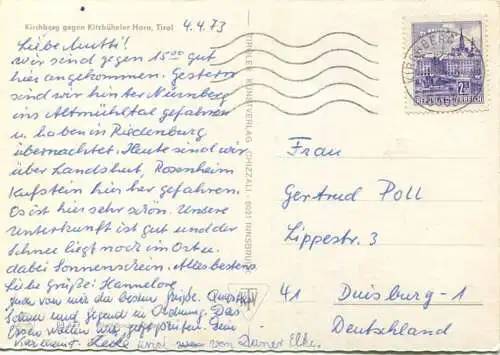 Kirchberg gegen Kitzbüheler Horn, Tirol
4.4.73
Liebe Mutti!
wir sind gegen 15.00 gut
hier angekommen. Gestern
sind wir hinter Nürnberg
ins Altmühltal gefahren
u. haben in Riedenburg
übernachtet. Heute sind wir
über Landshut, Rosenheim
Kufstein hier her gefahren.
Es ist hier sehr schön. Unsere
Unterkunft ist gut und der
Schnee liegt noch im Ort u.
dabei Sonnenschein. Alles bestens
Liebe Grüße! Hannelore
Auch von mir die besten Grüße.
und Gegend in Ordnung. Das
Essen wollen wir
von Deiner Elke.
TIROLER KUNSTVERLAG CHIZZALI · 6021 INNSBRUCK
KIRCHBERG
REPUBLIK ÖSTERREICH
Frau
Gertrud Poll
Lippestr. 3
41 Duisburg-1
Deutschland